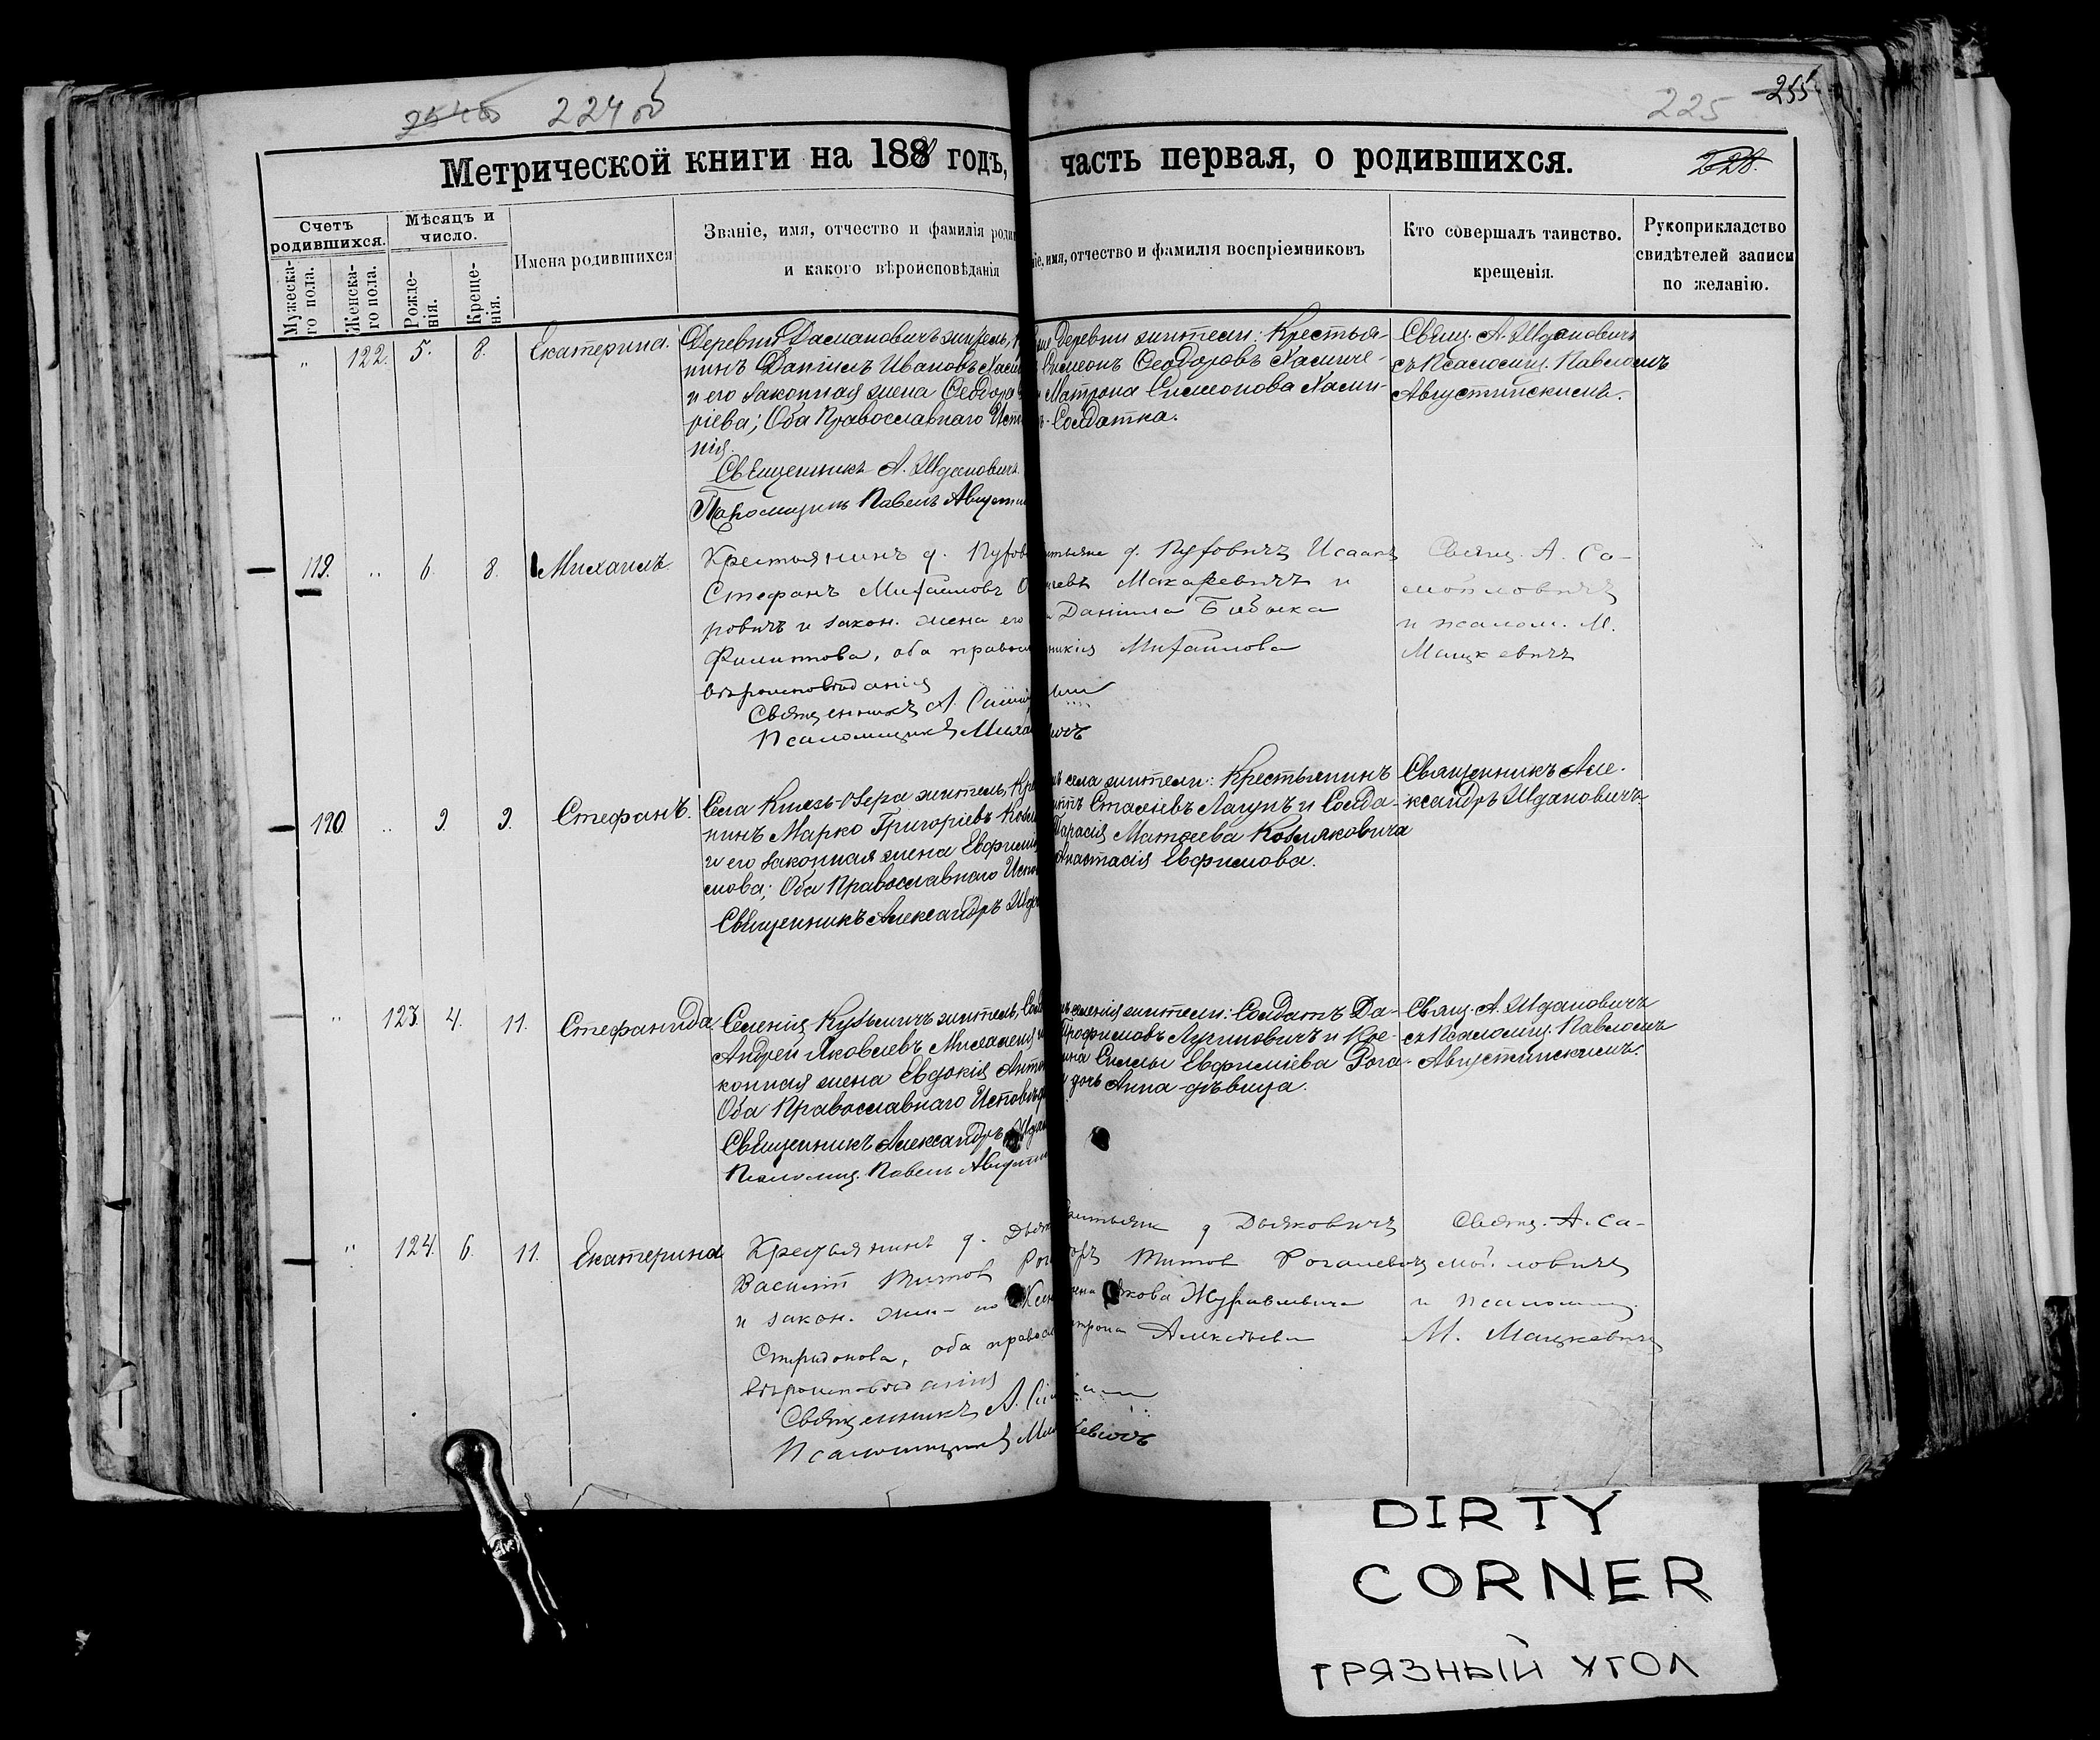 224 об
225
255
Метрической книги на 188 годъ, часть первая, о родившихся.
228.
Счетъ родившихся.
Мѣсяцъ и число.
Имена родившихся
Званіе, имя, отчество и фамилія роди
и какого вѣроисповѣданія
іе, имя, отчество и фамилія воспріемниковъ
Кто совершалъ таинство.
крещенія.
Рукоприкладство
свидѣтелей записи
по желанію.
Мужеска-
го пола.
Женска-
го пола.
Рожде-
нія.
Креще-
нія.
" 122. 5. 8. Екатерина.
Деревни Дасмановичъ житель,
нинъ Даніилъ Ивановъ Хасми
и его законная жена Ѳеодора
ріева; Оба Православнаго Испо
нія.
Священникъ А. Ждановичъ.
Псаломщикъ Павелъ Августин
Деревни жители: Крестья-
Симеонъ Ѳеодоровъ Хасиче-
Матрона Симеонова Хасми-
Солдатка.
Свящ. А. Ждановичъ
съ Псаломщ. Павломъ
Августинскимъ.
119. " 6. 8. Михаилъ.
Крестьянинъ д. Пухов
Стефанъ Михаиловъ
ровичъ и закон. жена его
Филиппова, оба правосл
вѣроисповѣданія
Священникъ А.
Псаломщикъ
стьяне д. Пуховичъ Исаакъ
Макаревичъ и
Даніила Бибика
Михаилова
Свящ. А. Са-
мойловичъ
и псалом. М.
Мацкевичъ
120. " 9. 9. Стефанъ.
Села Князь-Озера житель, Кре
нинъ Марко Григоріевъ Козл
и его законная жена Евфимі
мова; Оба Православнаго Испо
Священникъ Александръ Жда
села жители: Крестьянинъ
Лагунъ и Солда-
Тарасія Матѳеева Козляковича
Анастасія Евфимова.
Священникъ Але-
ксандръ Ждановичъ
" 123. 4. 11. Стефанида.
Селенія Кузьмичъ житель, Солд
Андрей Яковлевъ Михаленя и
конная жена Евдокія Анто
Оба Православнаго Исповѣд
Священникъ Александръ Ждан
Псаломщ. Павелъ Августин
селенія жители: Солдатъ Да-
Трофимовъ Лугиновичъ и Кре-
нина Симы Евфиміева Рога-
дочь Анна-дѣвица.
Свящ. А. Ждановичъ
съ Псаломщ. Павломъ
Августинскимъ.
" 124. 6. 11. Екатерина
Крестьянинъ д. Дьяк
Василій Титов Рог
и закон. жена его Ксен
Спиридонова, оба правосл
вѣроисповѣданія
Священникъ А.
Псаломщикъ
стьяне д Дьяковичъ
Титов Рогалевичъ
Якова Журавлевича
Матрона
Свящ. А. Са-
мойловичъ
и псаломщ.
М. Мацкевичъ
DIRTY
CORNER
ГРЯЗНЫЙ УГОЛ